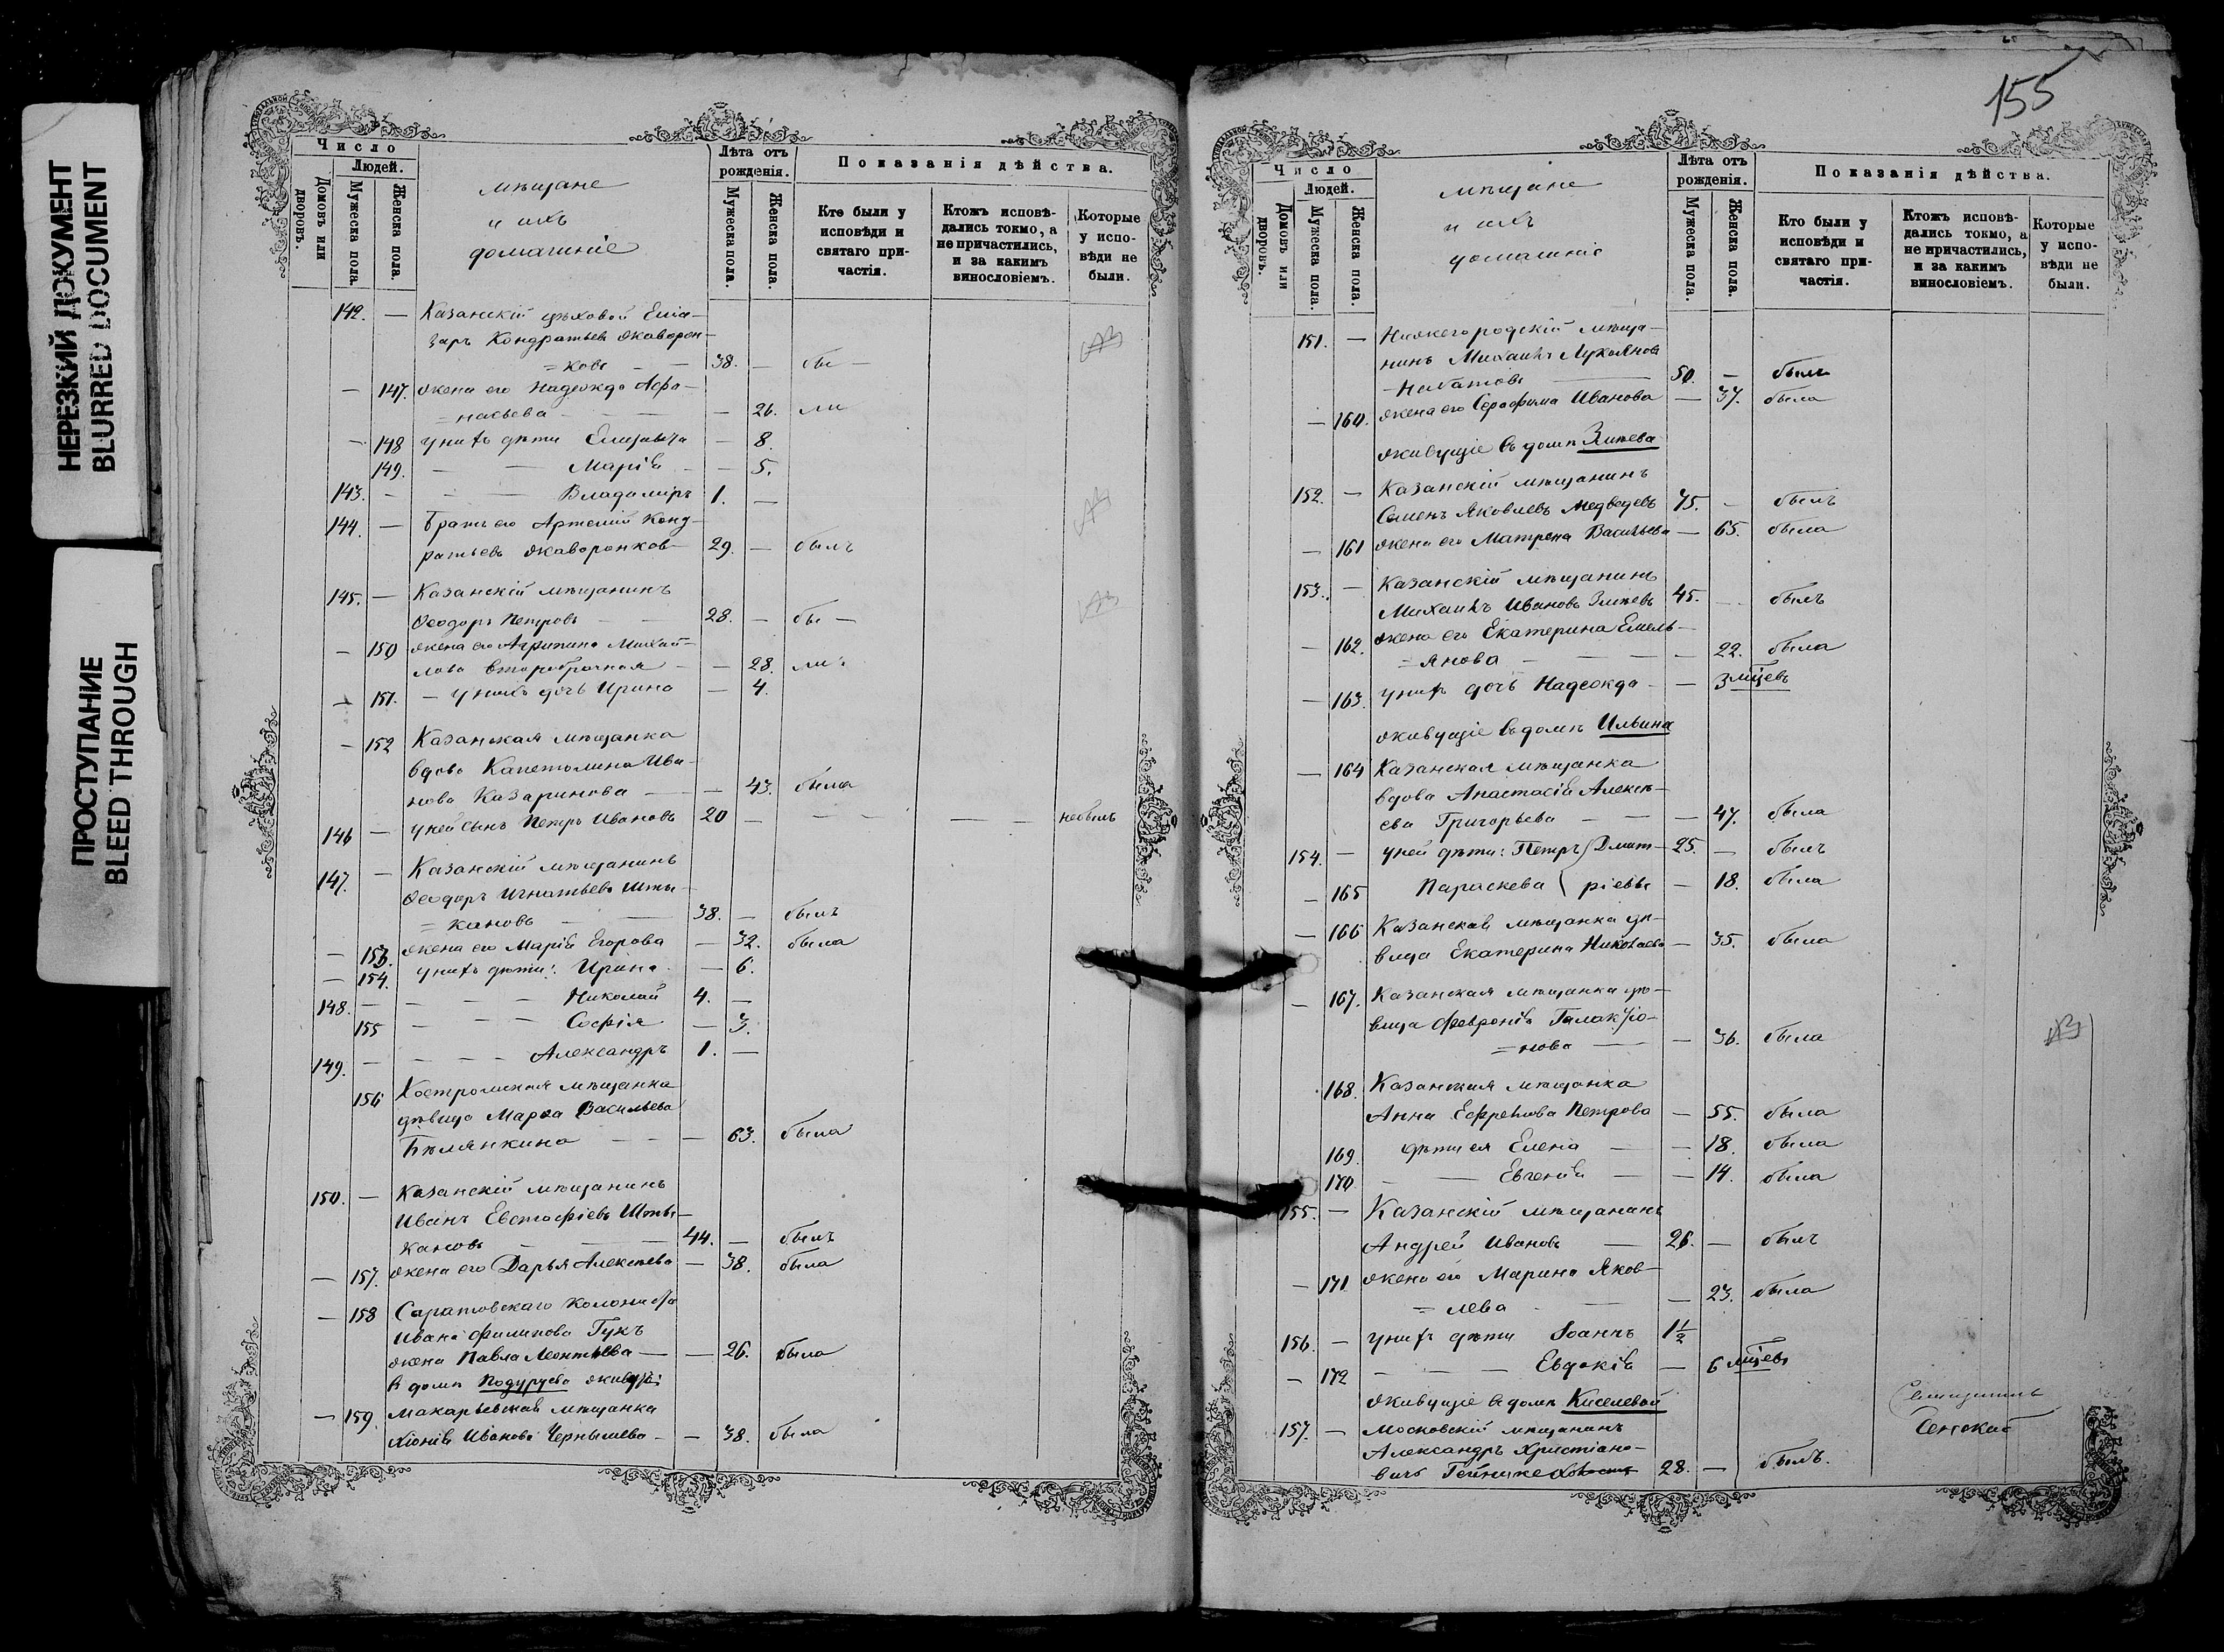 НЕРЕЗКИЙ ДОКУМЕНТ
BLURRED DOCUMENT
ПРОСТУПАНИЕ
BLEED THROUGH
Число
Людей.
Домовъ или дворовъ.
Мужеска пола.
Женска пола.
Мѣщане
и ихъ
домашніе
Лѣта отъ рожденія.
Мужеска пола.
Женска пола.
Показанія дѣйства.
Кто были у исповѣди и святаго причастія.
Ктожъ исповѣдались токмо, а не причастились, и за какимъ винословіемъ.
Которые у исповѣди не были.
142. — Казанскій цѣховой
заръ Кондратьевъ Жаворон-
=ковъ — — 38. — бы —
— 147. жена его Надежда Афа-
=насьева — — — 26. ли
— 148 у нихъ дѣти Елизавета — 8.
149. — — Марія — — 5.
143. — — — Владиміръ 1. —
144. — Братъ его Артемій Конд-
ратьевъ Жаворонков 29. — былъ
145. — Казанскій мѣщанинъ
Ѳеодоръ Петровъ — — 28. — бы —
— 150 жена его Агрипина Михай-
лова второбрачная — — 28. ли
— 151. — у нихъ дочь Ирина — 4.
— 152 Казанская мѣщанка
вдова Капетолина Ива-
нова Казаринова — — 43. была
146 — у ней сынъ Петръ Ивановъ 20 — — — — — небылъ
147. — Казанскій мѣщанинъ
Ѳеодоръ Игнатьевъ Шты-
=кановъ — — 38. — былъ
— 153. жена его Марія Егорова — 32. была
— 154. у нихъ дѣти: Ирина — 6.
148. — — — — Николай 4. —
155 — — — Софія — 3.
149. — — — — Александръ 1. —
156 Костромская мѣщанка
дѣвица Марѳа Васильева
Бѣлянкина — — — 63. была
150. — Казанскій мѣщанинъ
Иванъ Евстафіевъ Шты-
кановъ — — 44. — былъ
— 157. жена его Дарья Алексѣева — 38. была
— 158 Саратовскаго колониста
Ивана Филипова Гукъ
жена Павла Леонтьева — — 26. была
В домѣ Подуруева
— 159. Макарьевская мѣщанка
Хіонія Иванова Чернышева — — 38. была
155
Число
Людей.
Домовъ или дворовъ.
Мужеска пола.
Женска пола.
Мѣщане
и ихъ
домашніе
Лѣта отъ рожденія.
Мужеска пола.
Женска пола.
Показанія дѣйства.
Кто были у исповѣди и святаго причастія.
Ктожъ исповѣдались токмо, а не причастились, и за какимъ винословіемъ.
Которые у исповѣди не были.
151. — Нижегородскій мѣща-
нинъ Михаилъ Лукояновъ
— Набатовъ — 50. — былъ
— 160. жена его Серафима Иванова — 37. была
живущіе въ домѣ Змѣева
152. — Казанскій мѣщанинъ
Семенъ Яковлевъ Медведевъ 75. — былъ
— 161 жена его Матрена Васильева — 65. была
153. — Казанскій мѣщанинъ
Михаилъ Ивановъ Змѣевъ 45. — былъ
— 162. жена его Екатерина Емель-
=янова — — — — 22. была
— 163. у нихъ дочь Надежда — — 3 мѣсяцевъ
живущіе въ домѣ Ильина
— 164 Казанская мѣщанка
вдова Анастасія Алексѣ-
ева Григорьева — — — 47. была
154. — у ней дѣти: Петръ Дмит- 25. — былъ
— 165 Параскева ріевы — 18. была
— 166 Казанская мѣщанка дѣ-
вица Екатерина Николаева — 35. была
— 167. Казанская мѣщанка дѣ-
вица Февронія Галактіо-
=нова — — 36. была
168. Казанская мѣщанка
Анна Ефремова Петрова — 55. была
169. дѣти ея Елена — — 18. была
170 — — Евгенія — — 14. была
155. — Казанскій мѣщанинъ
Андрей Ивановъ — 26. — былъ
— 171 жена его Марина Яков-
=лева — — — 23. была
156. — у нихъ дѣти Іоаннъ 1½
— 172 — — — Евдокія — 6 мѣсяцевъ
живущіе в домѣ Киселевой
157. — Московскій мѣщанинъ
Александръ Христіано-
вичъ 28. — былъ.